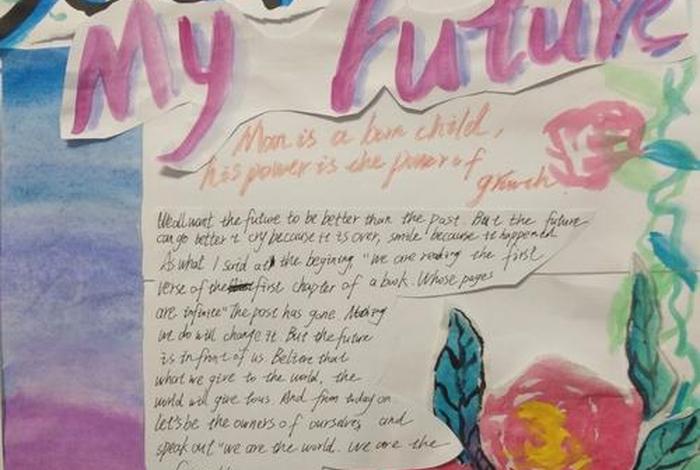 My Future
Man is a born child,
his power is the power of
growth.
We all want the future to be better than the past. But the future
can go better't cry because it is over, smile because it happened
As what I said at the begining "we are reading the first
verse of the first chapter of a book. Whose pages
are infinite" The past has gone. Nothing
we do will change it. But the future
is in front of us. Believe that
what we give to the world, the
world will give to us. And from today on
let's be the owners of ourselves and
speak out "we are the world. we are the